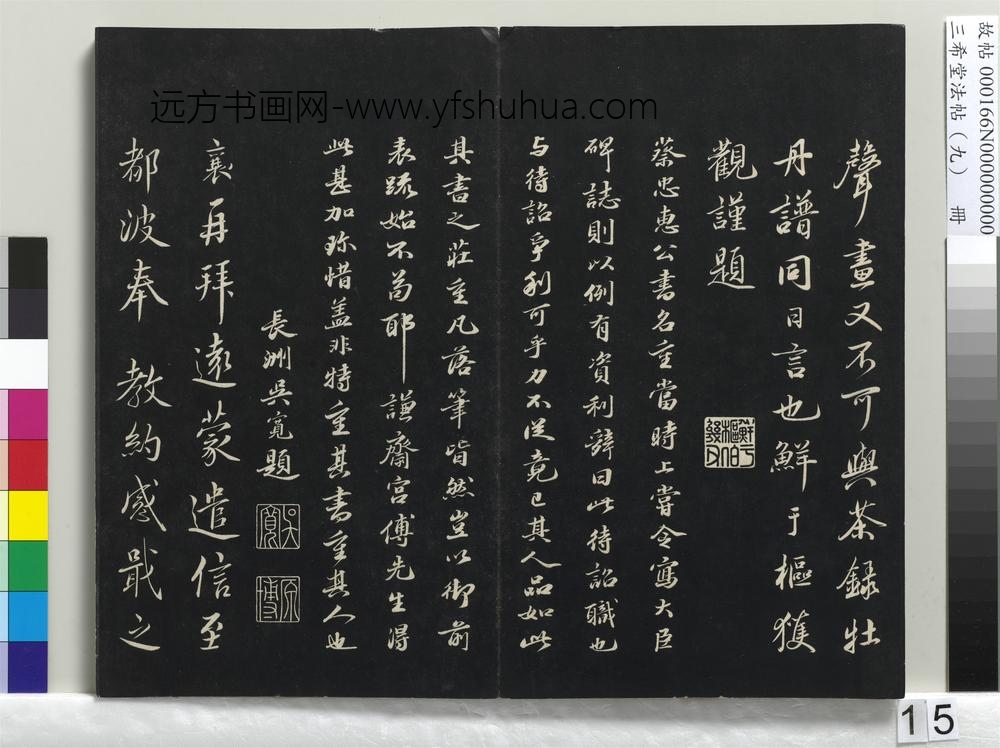 聲畫又不可與茶録牡
丹譜同日言也鮮于樞獲
觀謹題
蔡忠惠公書名重當時上嘗令寫大臣
碑誌則以例有資利辭曰此待詔職也
与待詔爭利可乎力不從竟已其人品如此
其書之莊重凡落筆皆然豈以御前
表疏始不苟耶謙齋宫傅先生得
此甚加珎惜盖非特重其書重其人也
長洲吳寬題
吳寬
原博
襄再拜遠蒙遣信至
都波奉教約感戢之
远方书画网-www.yfshuhua.com
故帖 000166N000000000
三希堂法帖（九） 冊
15